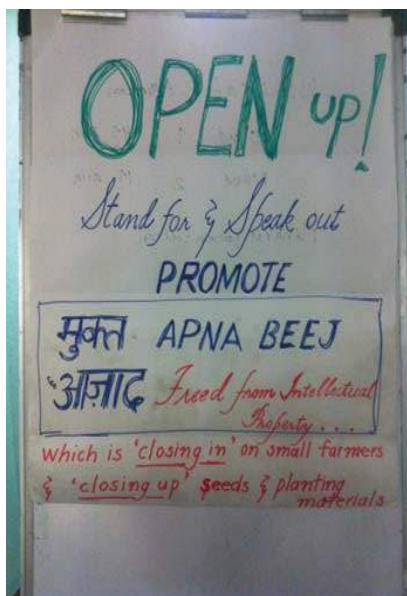 OPEN up!
Stand for & Speak out
PROMOTE
मुक्त APNA BEEJ
आज़ाद Freed from Intellectual
Property...
which is 'closing in' on small farmers
& 'closing up' seeds & planting
materials